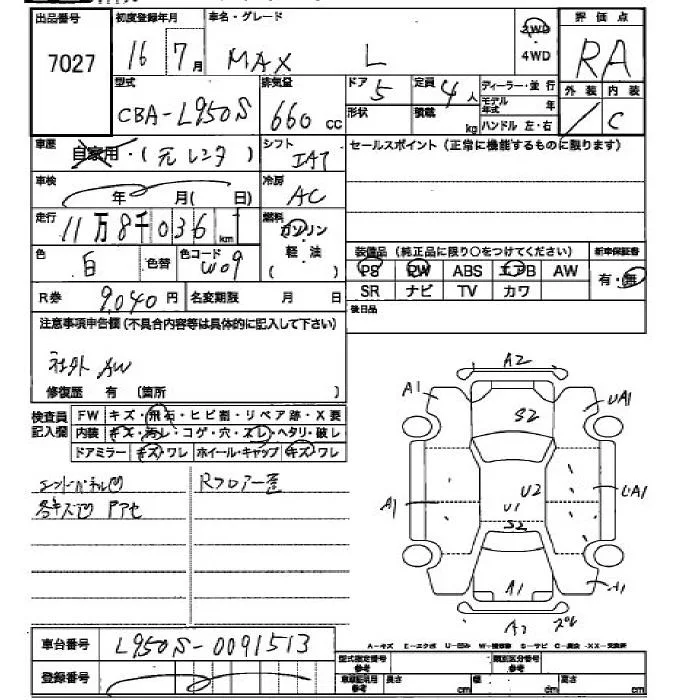 出品番号 初度登録年月 車名・グレード 2WD 評価点
7027 16 7月 MAX L ・4WD RA
型式 排気量 ドア 5 定員 4人 ディーラー・並行 外装 内装
CBA-L950S 660cc 形状 積載 kg モデル年式 年 / C
ハンドル 左・右
車歴 自家用・(元レンタ) シフト IAT セールスポイント(正常に機能するものに限ります)
車検 年 月( 日) 冷房 AC
走行 11万8千036km 燃料 ガソリン・軽油( )
色 白 色替 色コード W09 装備品(純正品に限り○をつけてください) 新車保証書
PS PW ABS エアB AW 有・無
R券 9,040円 名変期限 月 日 SR ナビ TV カワ
注意事項申告欄(不具合内容等は具体的に記入して下さい) 後日品
社外 AW
修復歴 有 (箇所 )
検査員記入欄 FW キズ・飛石・ヒビ割・リペア跡・X要
内装 キズ・汚レ・コゲ・穴・スレ・ヘタリ・破レ
ドアミラー キズ・ワレ ホイール・キャップ キズ・ワレ
エンドパネル凹 Rフロアー歪
各キズ凹 Pアセ
A2
A1 UA1
S2
A1 U2 UA1
U1
S2
A1 A1
A2 スペレ
車台番号 L950S-0091513
A-キズ E-エクボ U-凹み W-補修跡 S-サビ C-腐食 X・XX-交換済
登録番号 型式指定番号 参考 類別区分番号 参考
車庫証明用 参考 長さ cm 幅 cm 高さ cm